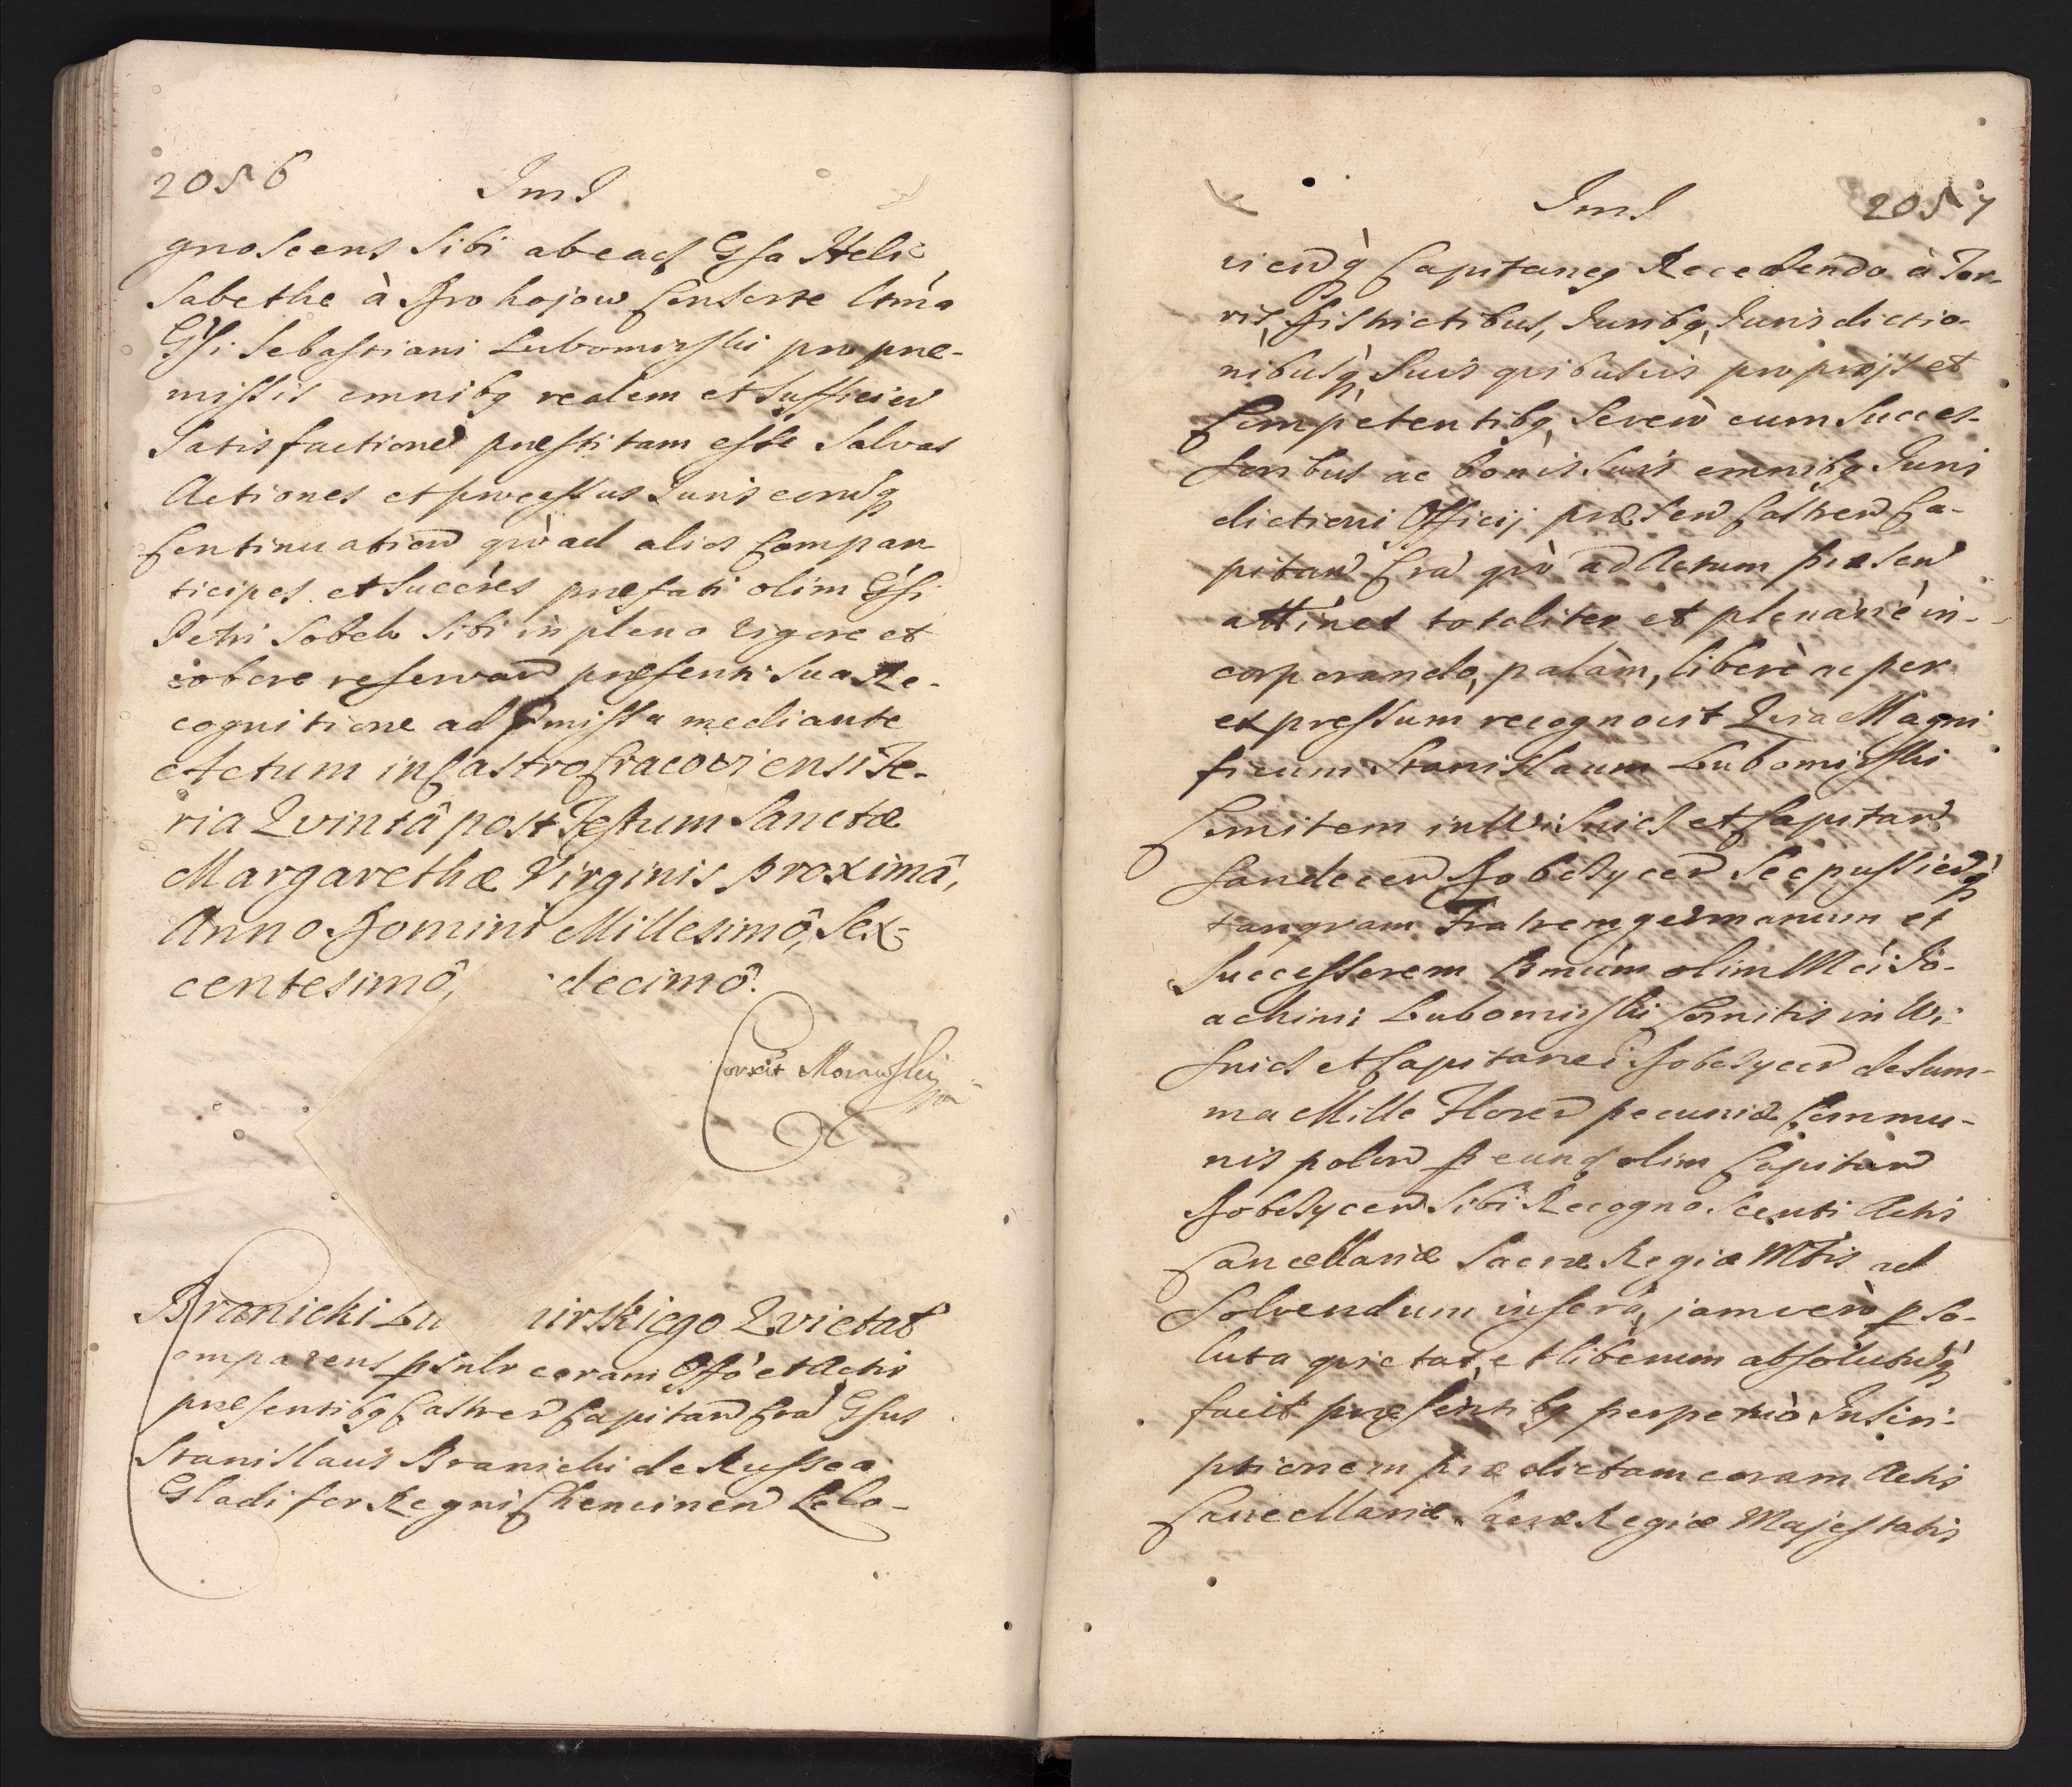 2056
ImJ
gnoscens Sibi ab eads Gsa Heli
Sabethe à Brohojow Consorte Ctma
Gsi Sebastiani Lubomirski pro prae-
missis omnibq realem et Sufficien
Satisfactione praestitam esse Salvas
Actiones et processus Juris eorusq
Continuation quò ad alios Compar
ticipes et Succères praefati olim Gsi
Petri Sobek Sibi in pleno vigore et
robore reservan praesenti Sua Re-
cognitione ad pmissa mediante
Actum in Castro Cracoviensi Fe-
ria Quintâ post Festum Sanctæ
Margarethæ Virginis proximâ,
Anno Domini Millesimô, Sex-
centesimô, decimô.
Corrxit Morawski
Branicki Lu mirskiego Quietat
Comparens psnlr coram Offò et Actis
præsentibq Castren Capitan Cra Gsus
Stanislaus Branicki de Russca
Gladifer Regni Chencinen Lelo-
ImJ
2057
vienq Capitaneq Recedendo à Ter-
ris, Districtibus, Juribq, Jurisdictio-
nibusq Suis quibusvis proprijs et
Competentibq, Severò cum Succes-
soribus ac bonis Suis omnibq Juris
dictioni Officij præsen Castren Ca-
pitan Cra quò ad Actum præsen
attinet totaliter et plenariè in-
corporando, palàm, liberè ac per
expressum recognovit Quia Magni
ficum Stanislaum Lubomirski
Comitem in Wisnics et Capitan
Sandecen Dobczycen Scepussienq
tanqvam Fratrem germanum et
Successorem olim Mci Jo-
achimi Lubomirski Comitis in Wi-
snics et Capitanei Dobczycen de Sum-
ma Mille Floren pecuniæ Commu-
nis polon p eund olim Capitan
Dobczycen Sibi Recognoscenti Actis
Cancellariæ Sacræ Regiæ Mtis ad
Solvendum inscrà, jam verò pso-
luta quietat, et liberum absolutusq
facit præsentibq perpetuò Inscri-
ptionem prædictam coram Actis
Cancellariæ Sacræ Regiæ Majestatis